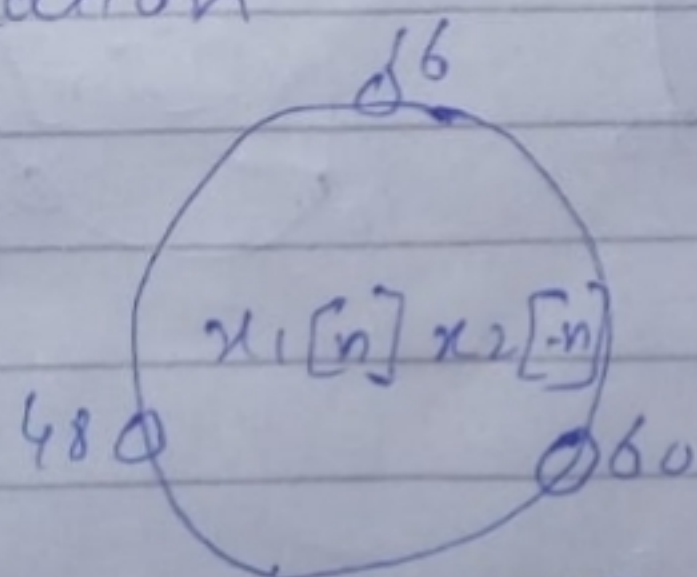 16
x1[n] x2[-n]
48 60